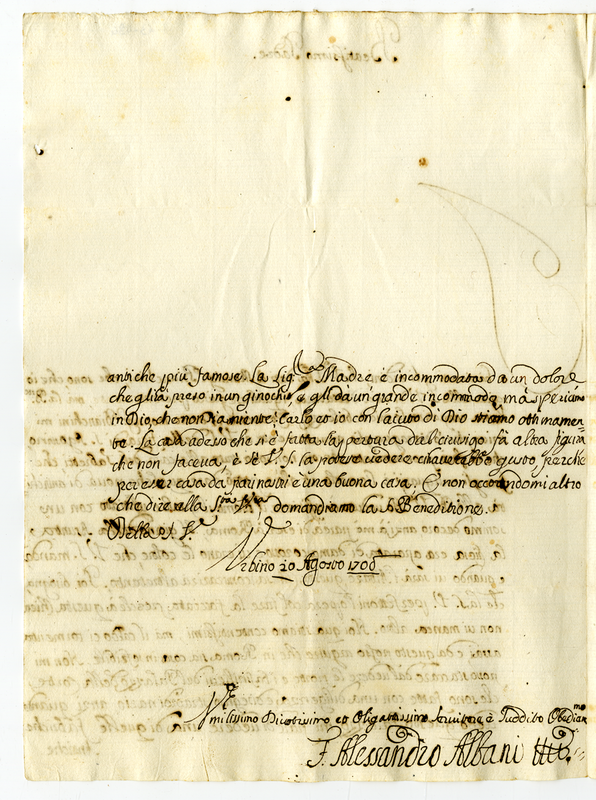 antiche più famose. La Sig.ra Madre è incommodata da un dolore
che gl'hà preso in un ginochio, e gli dà un grande incommodo, mà speriamo
in Dio, che non sia niente. Carlo et io con l'aiuto di Dio stiamo ottimamen=
te. La casa adesso che si è fatta l'apertura dal ciusigo fà altra figura
che non faceva, e se V. S. la potesse vedere ci haverebbe gusto, perche
per esser casa da farinosi è una buona casa. E non occorendomi altro
che dire alla S.tà V.ra domandiamo la S. Beneditione.
Della S. V.
Urbino 20 Agosto 1706
Umilissimo Divotissimo et Obligatissimo Servitore, e Suddito Obedien.mo
F. Alessandro Albani